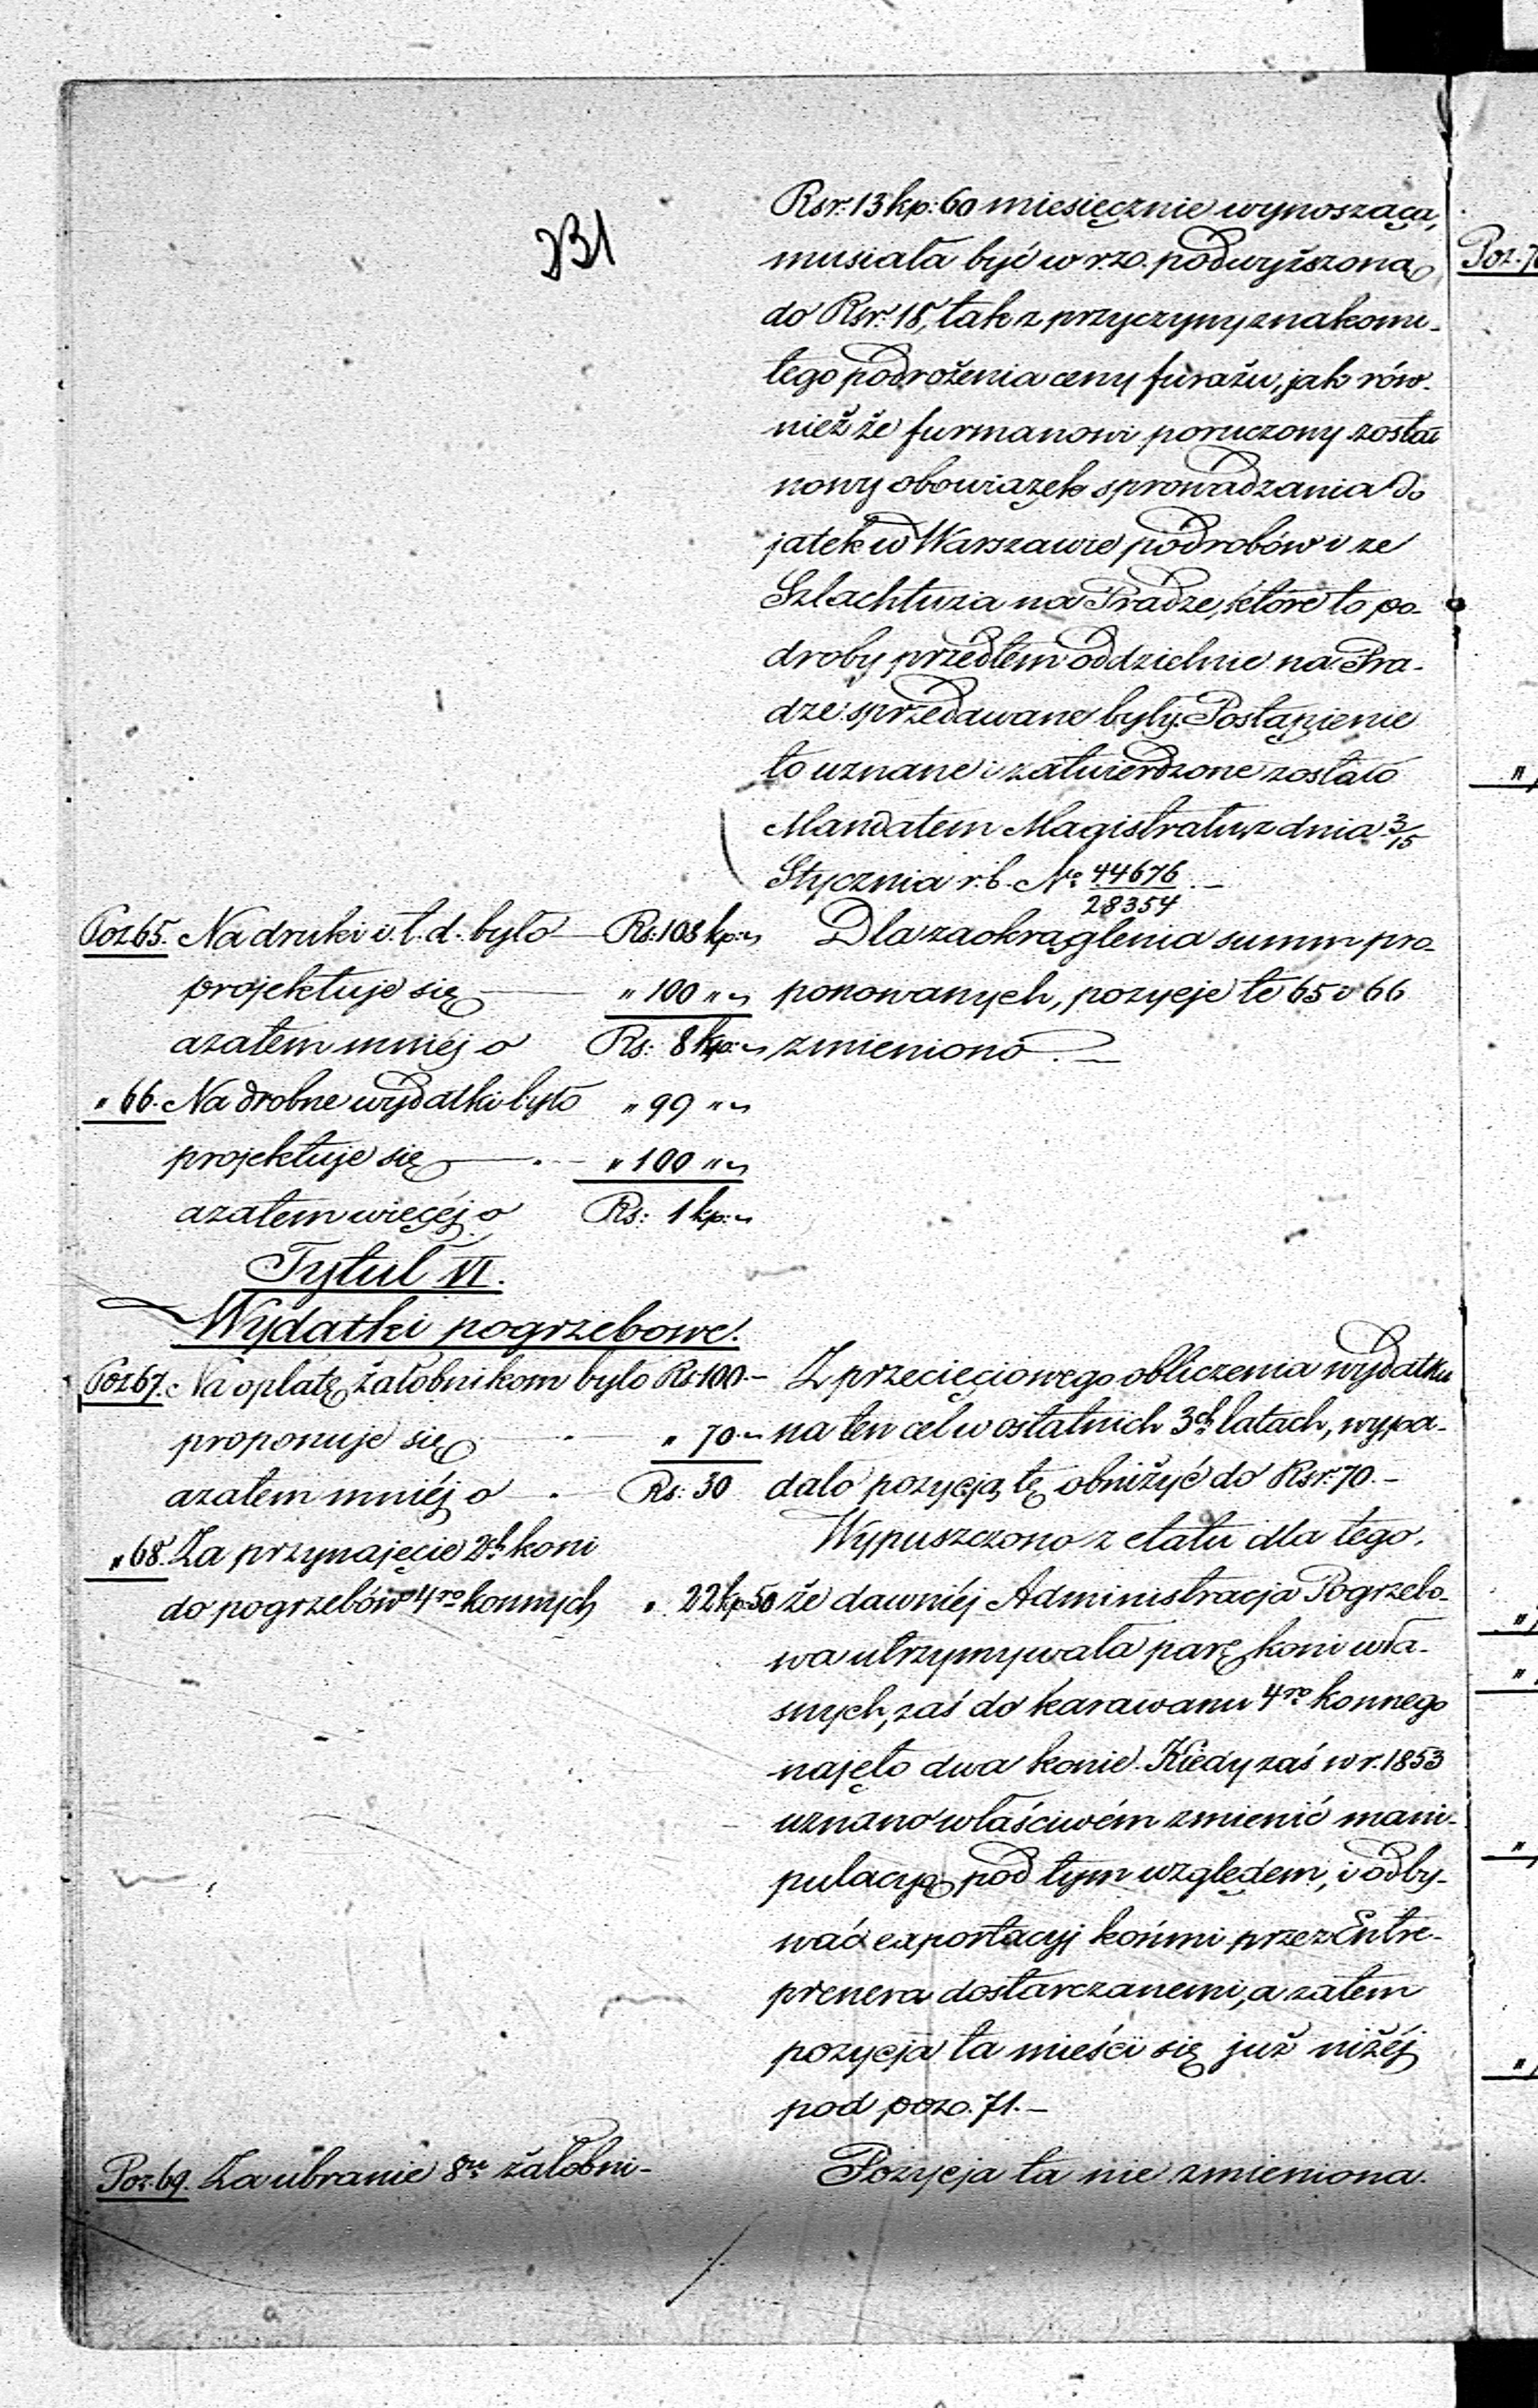 231
Rsr: 13 kp: 60 miesięcznie wynosząca,
musiała być w r.z. podwyższona
do Rsr: 18, tak z przyczyny znakomi-
tego podrożenia ceny furażu, jak rów-
nież że furmanowi poruczony został
nowy obowiązek sprowadzania do
jatek w Warszawie podrobów i ze
Szlachtuza na Pradze, które to po-
droby przedtem oddzielnie na Pra-
dze sprzedawane były. Postąpienie
to uznane i zatwierdzone zostało
Mandatem Magistratu z dnia 3/15
Stycznia r.b. No 44676/28354 . –
Poz 65. Na druki i. t. d. było — Rs: 108 kp: „
projektuje się — „ 100 „ „
azatem mniéj o Rs: 8 kp: „
Dla zaokrąglenia summ pro-
ponowanych, pozycje te 65 i 66
zmieniono. –
„ 66. Na drobne wydatki było „ 99 „ „
projektuje się — „ 100 „ „
azatem więcéj o Rs: 1 kp: „
Tytuł VI.
Wydatki pogrzebowe.
Poz 67. Na opłatę żałobnikom było Rs 100. –
proponuje się „ 70. „
azatem mniéj o Rs: 30
Z przecięciowego obliczenia wydatku
na ten cel w ostatnich 3ch latach, wypa-
dało pozycją tę obniżyć do Rsr: 70. –
„ 68. Za przynajęcie 2ch koni
do pogrzebów 4ro konnych „ 22 kp: 50
Wypuszczono z etatu dla tego,
że dawniéj Administracja Pogrzebo-
wa utrzymywała parę koni wła-
snych, zaś do karawanu 4ro konnego
najęto dwa konie. Kiedy zaś w r. 1853
uznano właściwém zmienić mani-
pulacyą pod tym względem, i odby-
wać exportacyj końmi przez Entre-
prenera dostarczanemi, a zatem
pozycja ta mieści się już niżéj
pod poz. 71. –
Poz. 69. Za ubranie 8u żałobni-
Pozycja ta nie zmieniona.
Poz. 7